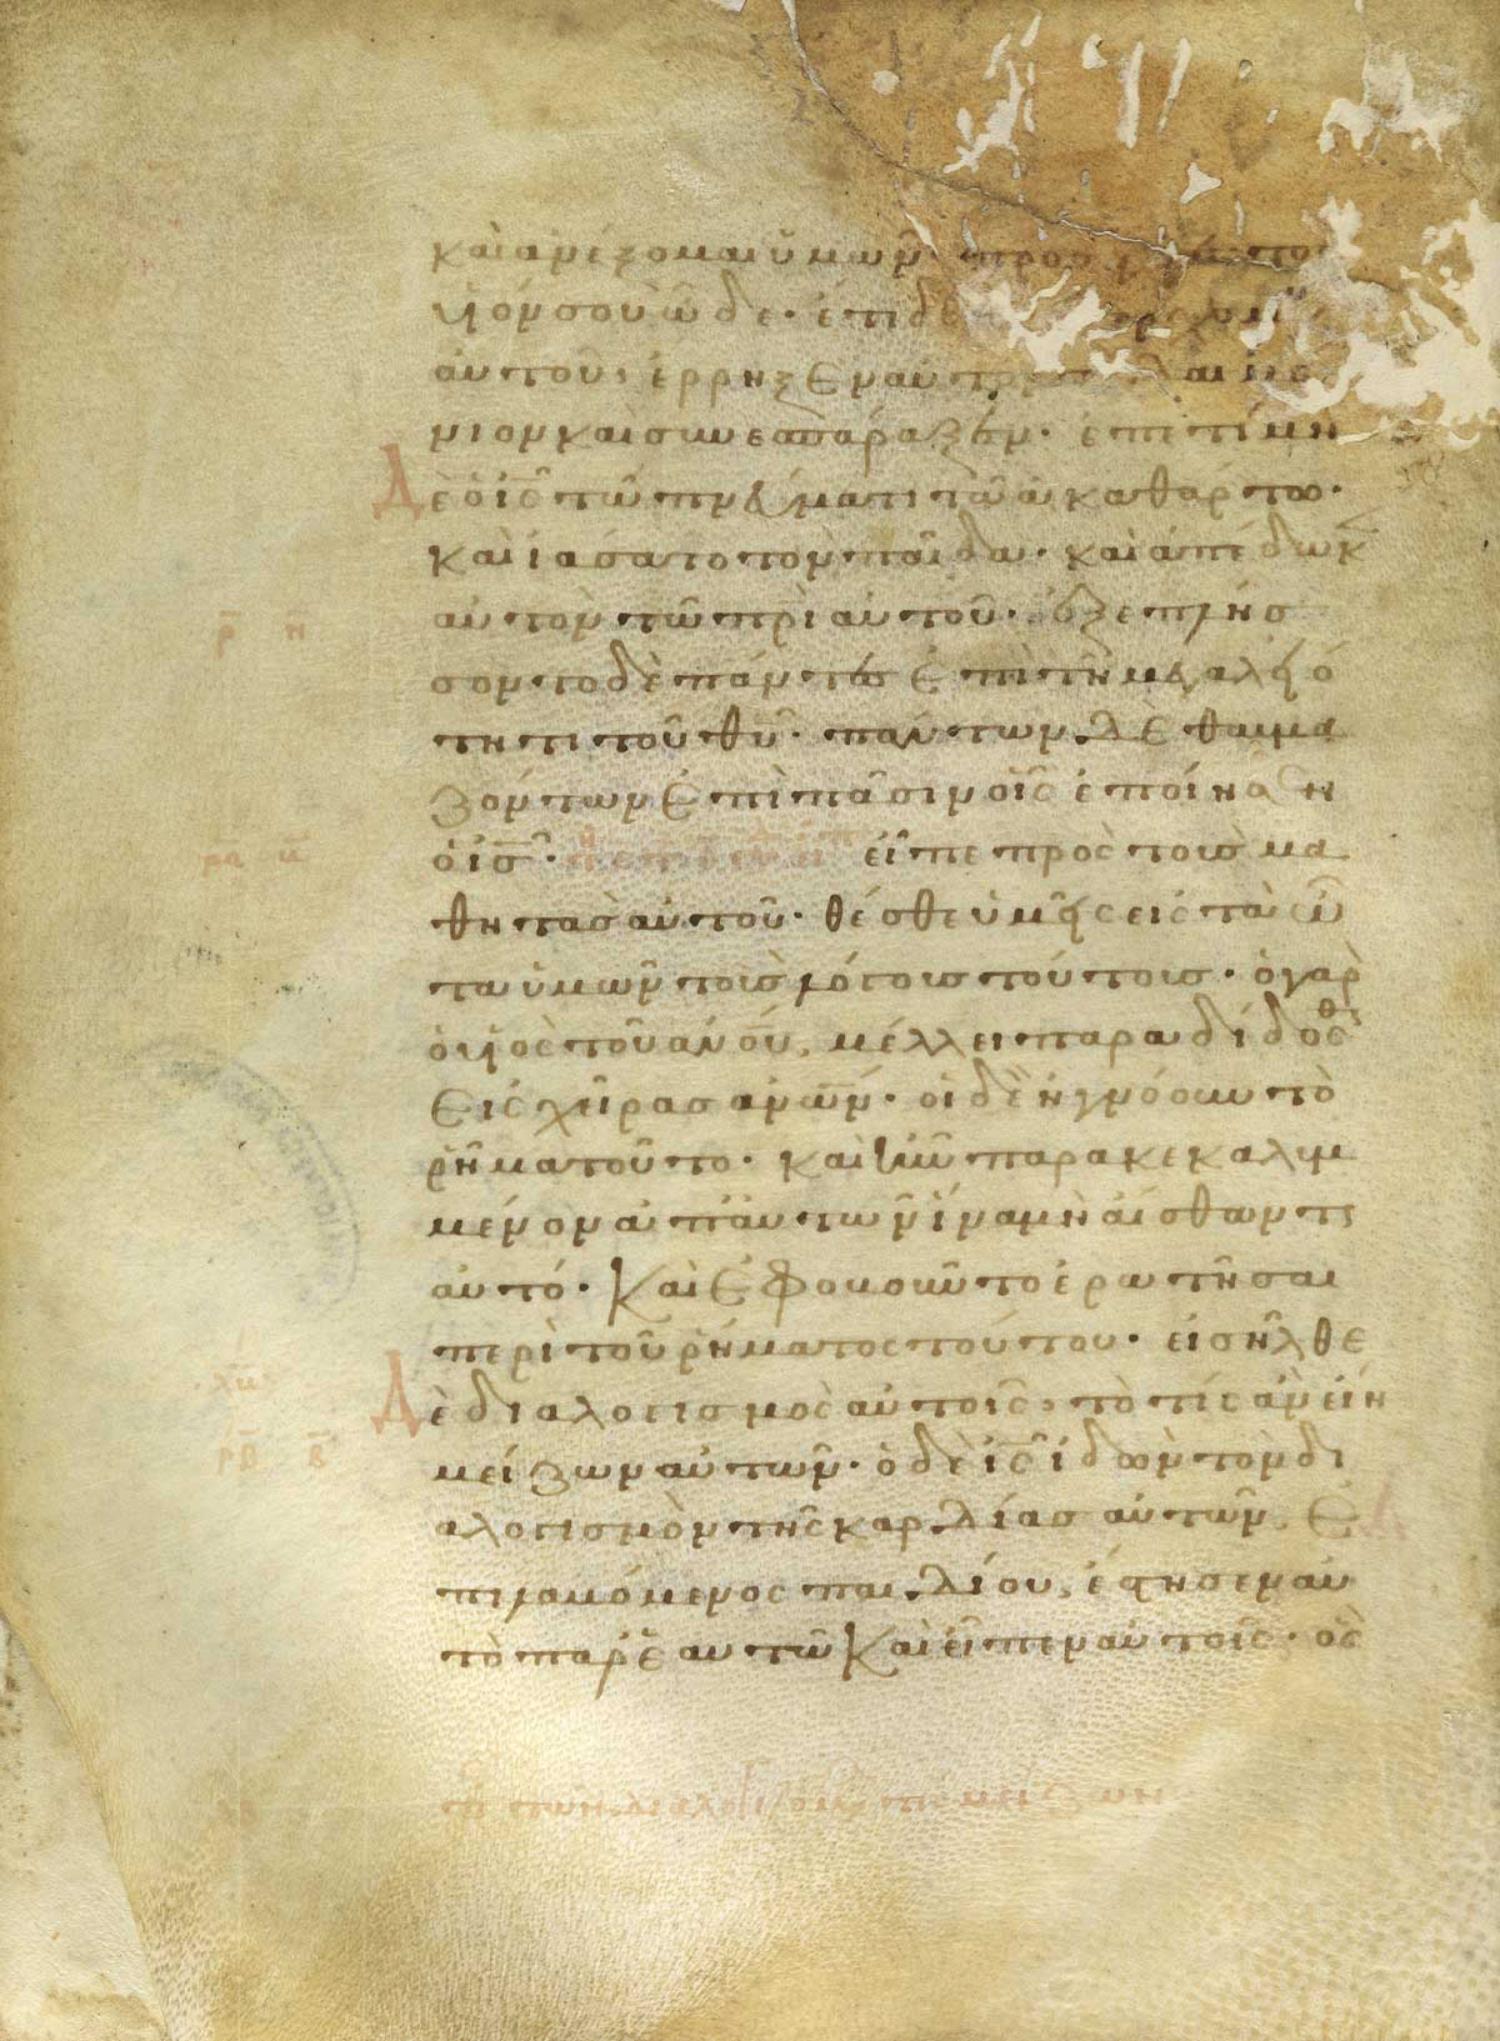 καὶ ἀνέξομαι ὑμῶν· προσ
υἱόν σου ὧδε· ἔτι δὲ
αὐτοῦ, ἔρρηξεν αὐτὸν
νιον καὶ συνεσπάραξεν· ἐπετίμη
Δὲ ὁ ις τῶ πνεύματι τῶ ἀκαθάρτω·
καὶ ἰάσατο τὸν παῖδα· καὶ ἀπέδωκ
αὐτὸν τῶ πρι αὐτοῦ· ἐξεπλήσ
σοντο δὲ πάντες ἐπὶ τῆ μεγαλειό
τητι τοῦ θυ· πάντων δὲ θαυμα
ζόντων ἐπὶ πᾶσιν οἷς ἐποίησεν
ὁ ις· εἶπε πρὸς τοὺς μα
θητὰς αὐτοῦ· θέσθε ὑμεῖς εἰς τὰ ὦ
τα ὑμῶν τοὺς λόγους τούτους· ὁ γὰρ
ὁ υἱὸς τοῦ ανου, μέλλει παραδίδοσθ
εἰς χεῖρας ανων· οἱ δὲ ἠγνόουν τὸ
ρῆμα τοῦτο· καὶ ἦν παρακεκαλυμ
μένον ἀπ' αὐτῶν ἵνα μὴ αἴσθωντι
αὐτό· Καὶ ἐφοβοῦντο ἐρωτῆσαι
περὶ τοῦ ρήματος τούτου· εἰσῆλθε
Δὲ διαλογισμὸς αὐτοῖς, τὸ τίς ἂν εἴη
μείζων αὐτῶν· ὁ δὲ ις ἰδὼν τὸν δι
αλογισμὸν τῆς καρδίας αὐτῶν, ἐ
πιλαβόμενος παιδίου, ἔστησεν αὐ
τὸ παρ' ἑαυτῶ Καὶ εἶπεν αὐτοῖς· ὃς